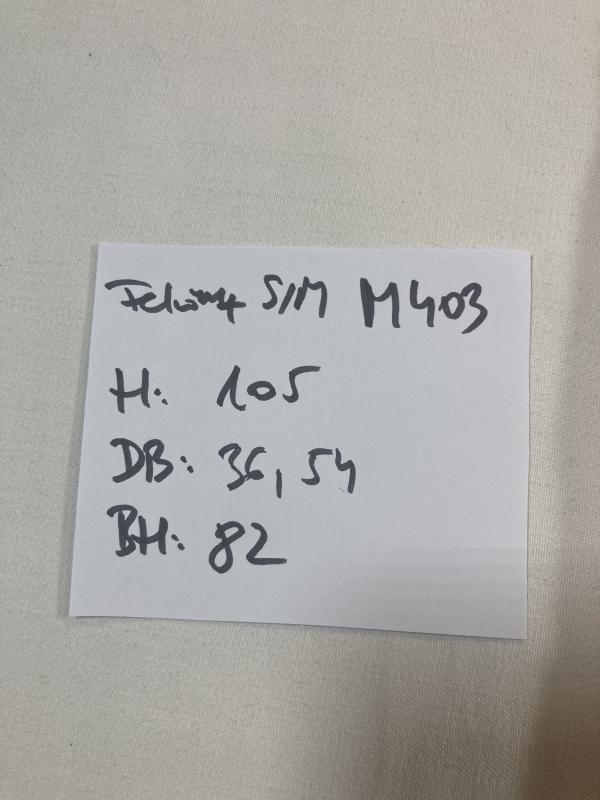 S/M M403
H: 105
DB: 36, 54
BH: 82